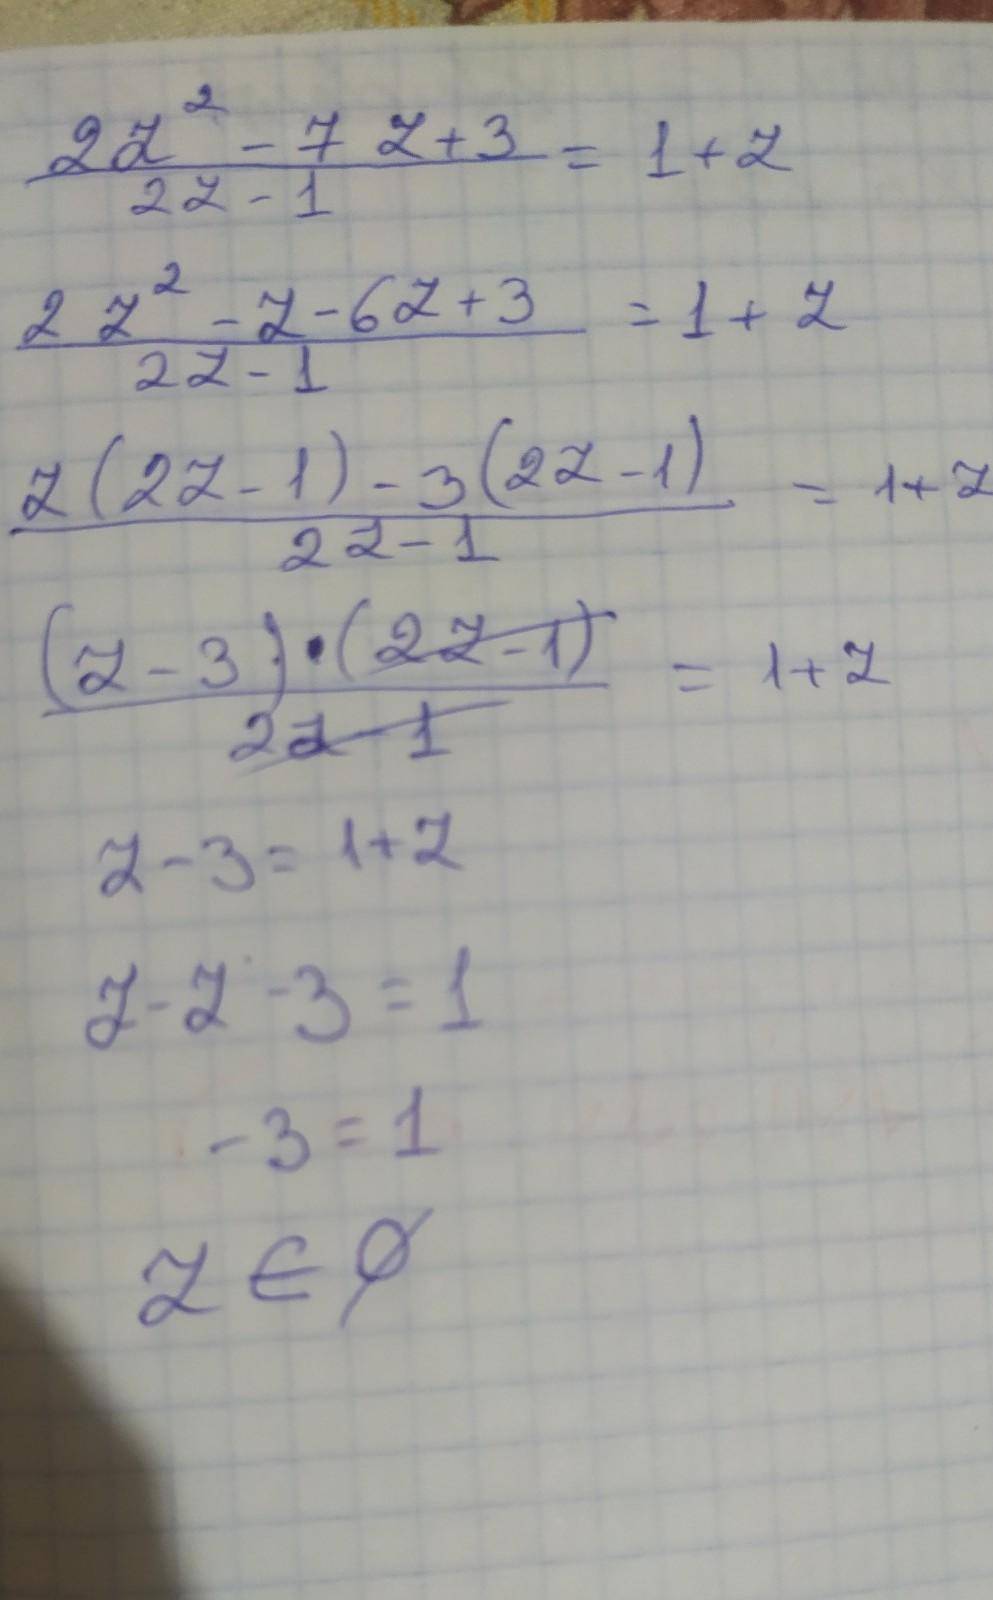 (2z² - 7z + 3)/(2z - 1) = 1 + z
(2z² - z - 6z + 3)/(2z - 1) = 1 + z
(z(2z - 1) - 3(2z - 1))/(2z - 1) = 1 + z
((z - 3)·(2z - 1))/(2z - 1) = 1 + z
z - 3 = 1 + z
z - z - 3 = 1
-3 = 1
z ∈ ∅